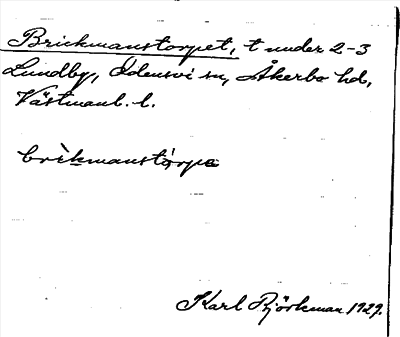 Brickmanstorpet, t under 2-3
Lundby, Odensvi sn, Åkerbo hd,
Västmanl. l.
brìkmanstòrpe
Karl Björkman 1929.